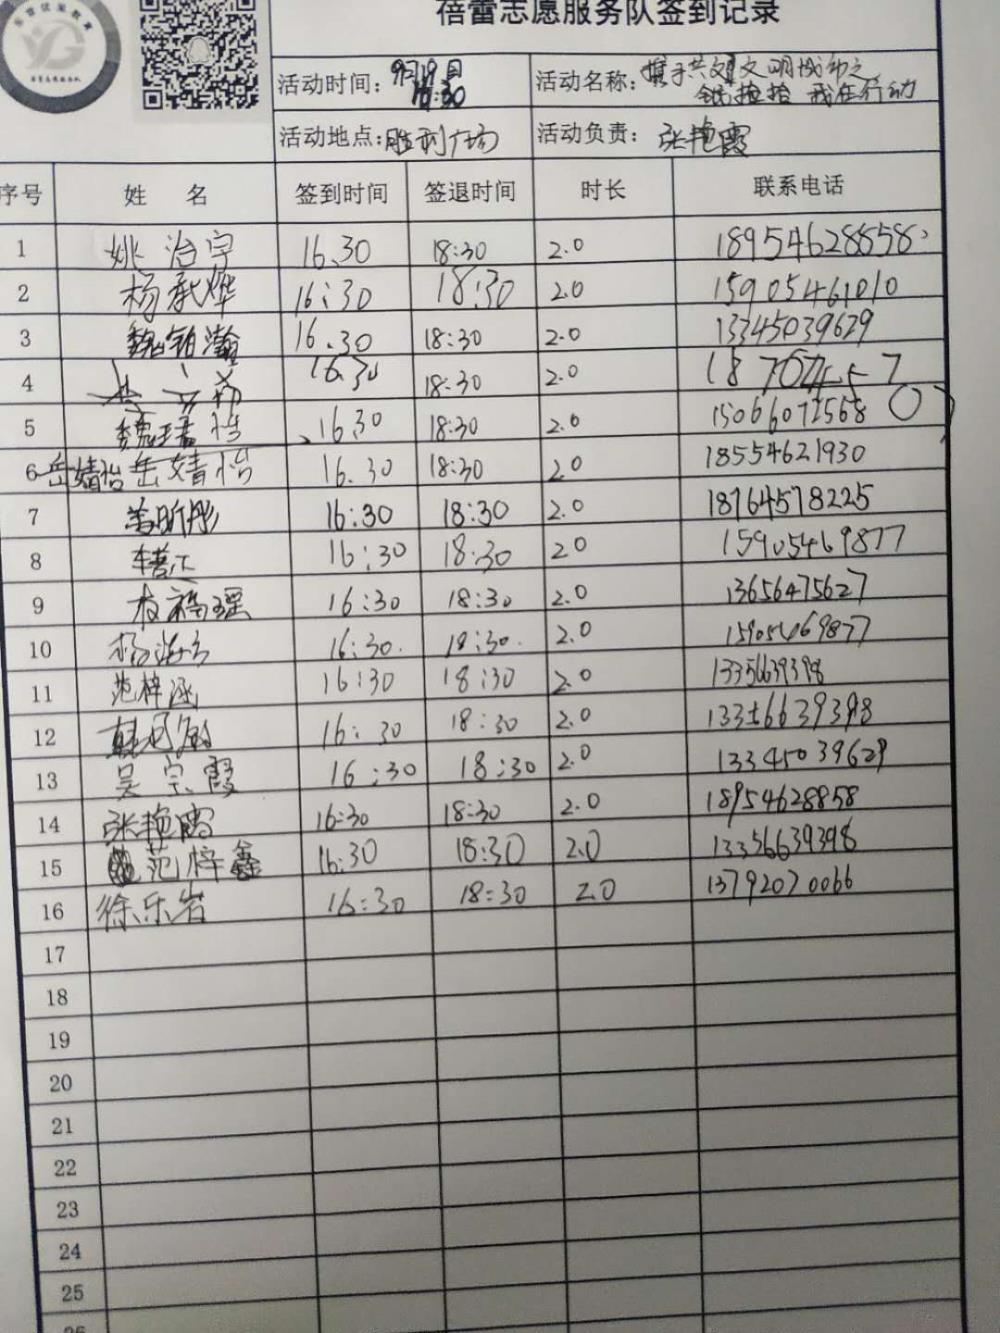 蓓蕾志愿服务队签到记录
活动时间: 9月19日 16:30 活动名称: 携手共建文明城市之 捡拾 我在行动
活动地点: 胜利广场 活动负责: 张艳霞
序号 姓 名 签到时间 签退时间 时长 联系电话
1 姚治宇 16.30 18:30 2.0 18954628858
2 杨承烨 16:30 18:30 2.0 15905461010
3 魏铂瀚 16.30 18:30 2.0 13345039629
4 16.30 18:30 2.0
5 魏瑾怡 16.30 18:30 2.0 15066072568
6 岳婧怡 岳婧怡 16.30 18:30 2.0 18554621930
7 16:30 18:30 2.0 18764578225
8 16:30 18:30 2.0 15905469877
9 16:30 18:30 2.0 13656475627
10 16:30. 18:30. 2.0 15905469877
11 范梓涵 16:30 18:30 2.0 1335639398
12 16:30 18:30 2.0 13356639398
13 吴宗霞 16:30 18:30 2.0 13345039629
14 张艳霞 16:30 18:30 2.0 18954628858
15 范梓鑫 16:30 18:30 2.0 13356639398
16 徐乐岩 16:30 18:30 2.0 13792070066
17
18
19
20
21
22
23
24
25
26